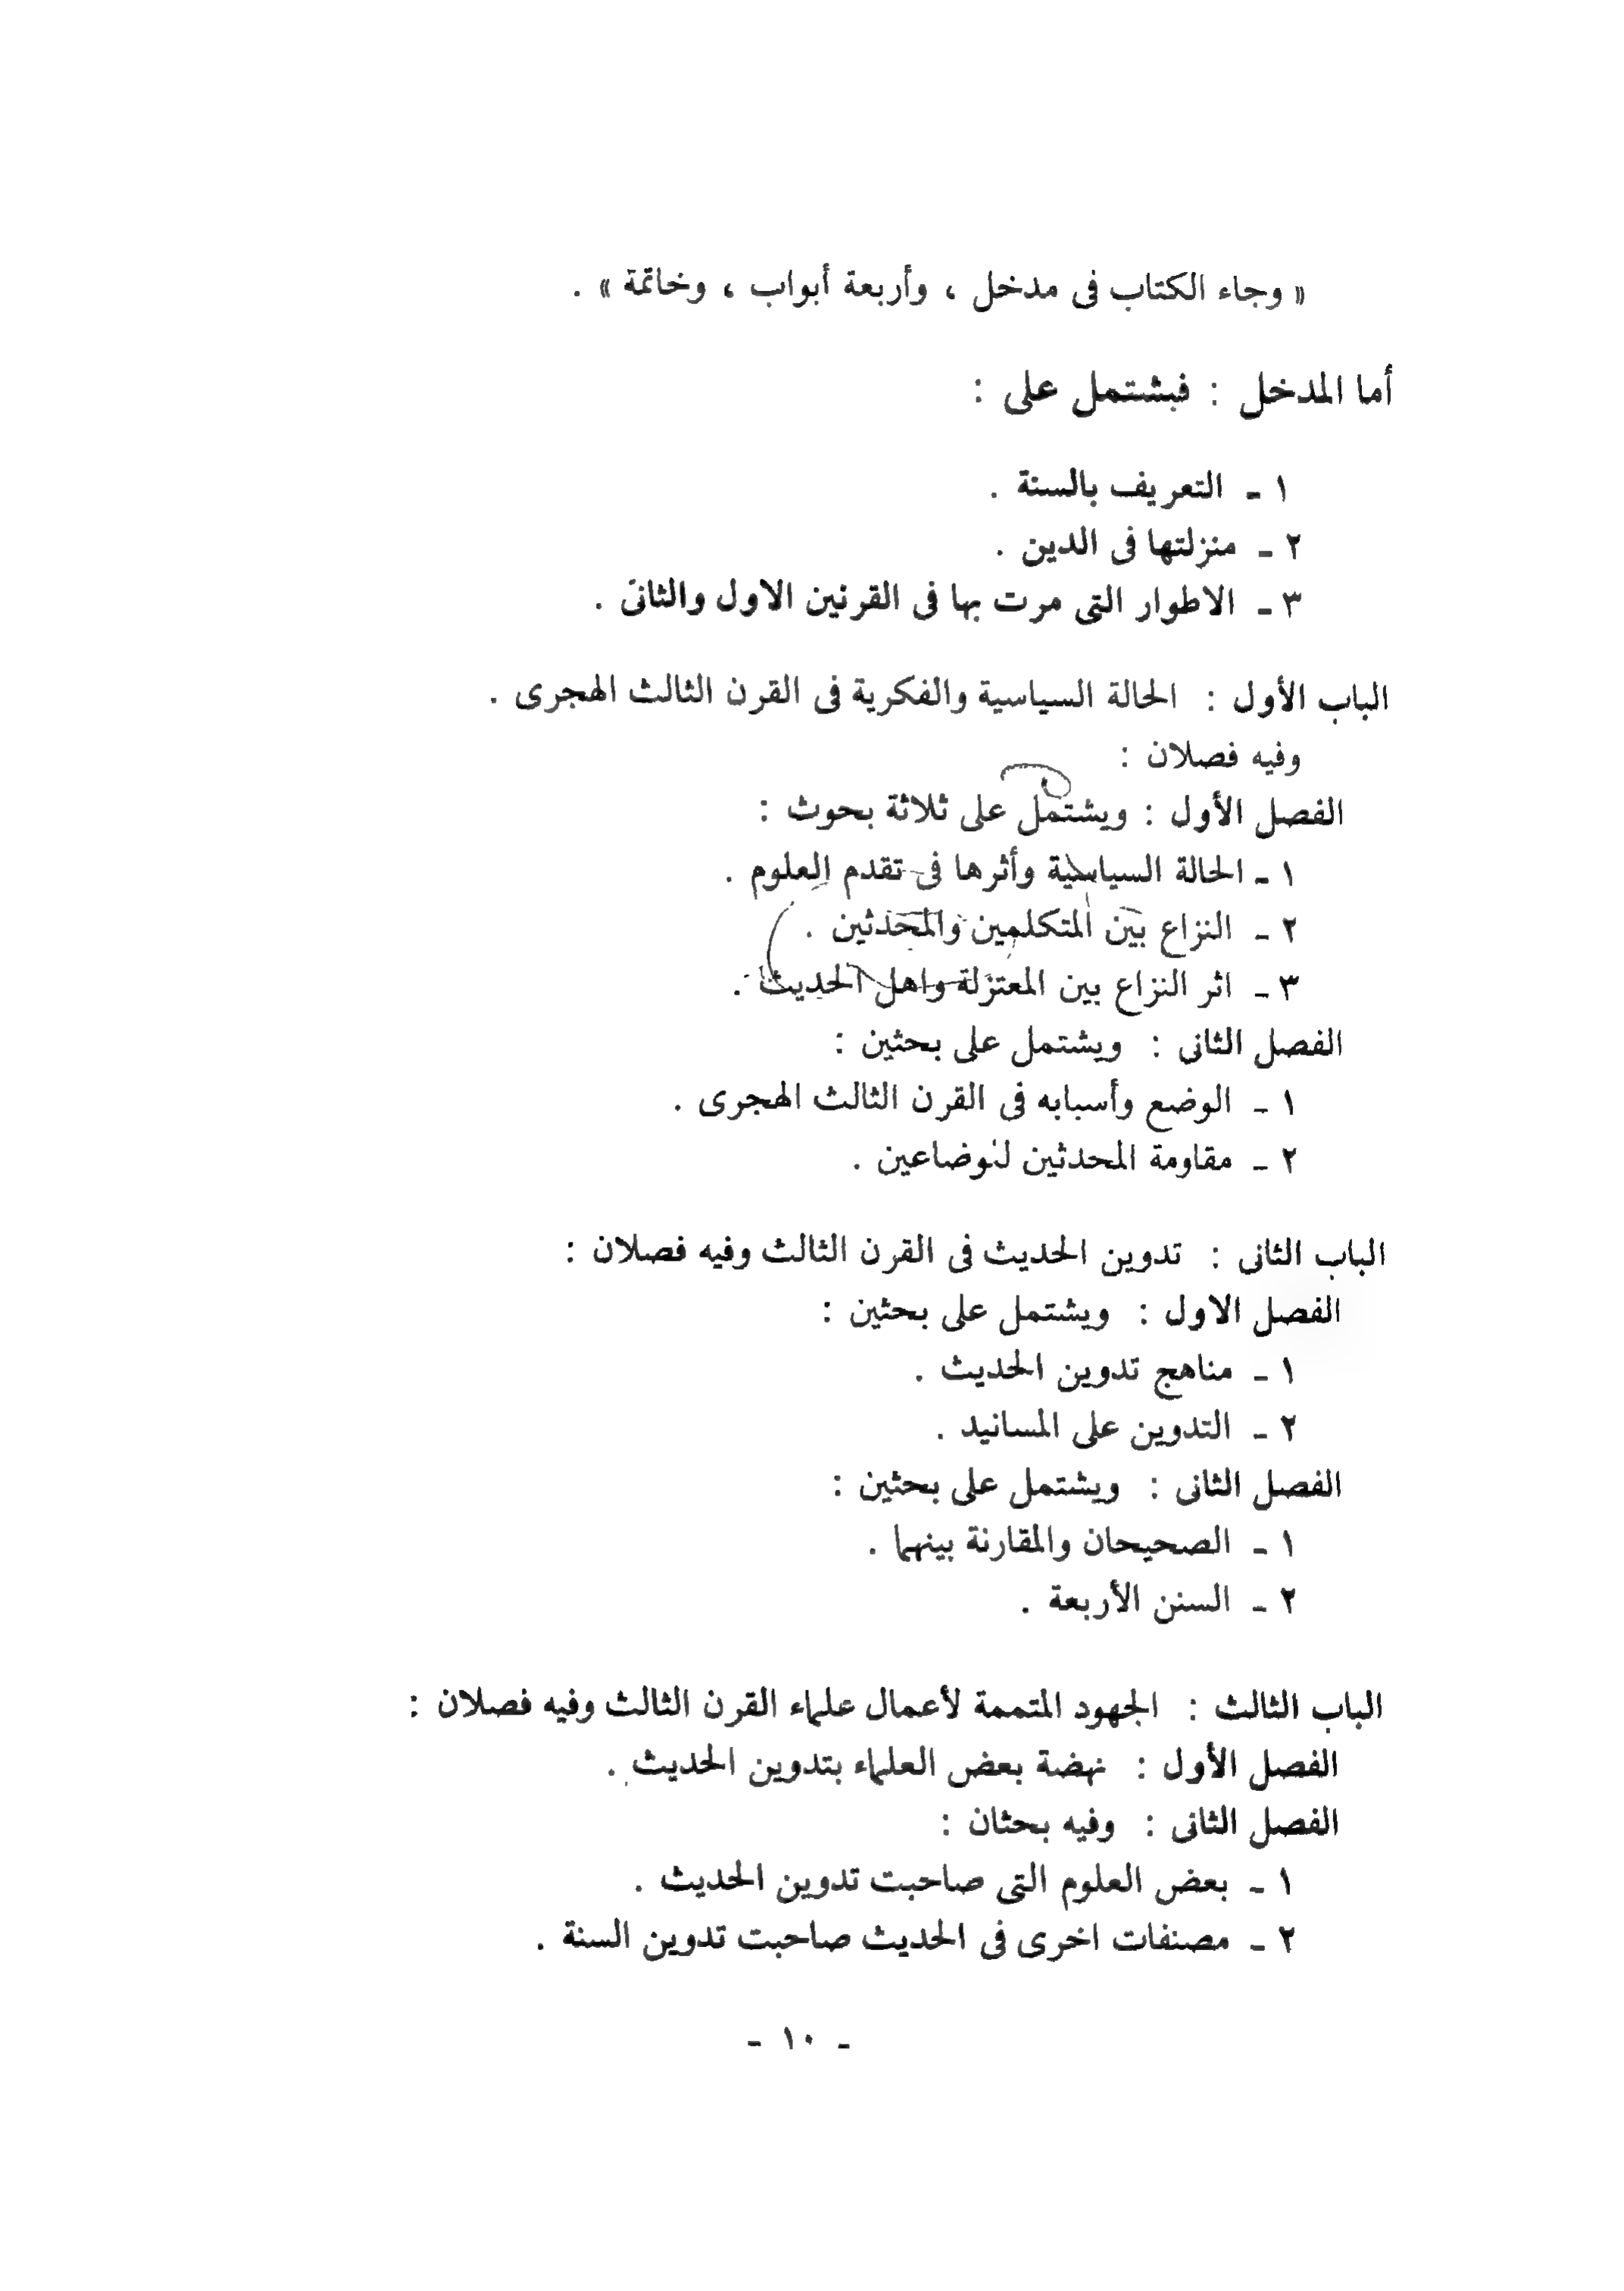 « وجاء الكتاب فى مدخل ، وأربعة أبواب ، وخاتمة » .
أما المدخل : فيشتمل على :
١ ـ التعريف بالسنة .
٢ ـ منزلتها فى الدين .
٣ ـ الاطوار التى مرت بها فى القرنين الاول والثانى .
الباب الأول : الحالة السياسية والفكرية فى القرن الثالث الهجرى .
وفيه فصلان :
الفصل الأول : ويشتمل على ثلاثة بحوث :
١ ـ الحالة السياسية وأثرها فى تقدم العلوم .
٢ ـ النزاع بين المتكلمين والمحدثين .
٣ ـ اثر النزاع بين المعتزلة واهل الحديث .
الفصل الثانى : ويشتمل على بحثين :
١ ـ الوضع وأسبابه فى القرن الثالث الهجرى .
٢ ـ مقاومة المحدثين للوضاعين .
الباب الثانى : تدوين الحديث فى القرن الثالث وفيه فصلان :
الفصل الاول : ويشتمل على بحثين :
١ ـ مناهج تدوين الحديث .
٢ ـ التدوين على المسانيد .
الفصل الثانى : ويشتمل على بحثين :
١ ـ الصحيحان والمقارنة بينهما .
٢ ـ السنن الأربعة .
الباب الثالث : الجهود المتممة لأعمال علماء القرن الثالث وفيه فصلان :
الفصل الأول : نهضة بعض العلماء بتدوين الحديث .
الفصل الثانى : وفيه بحثان :
١ ـ بعض العلوم التى صاحبت تدوين الحديث .
٢ ـ مصنفات اخرى فى الحديث صاحبت تدوين السنة .
ـ ١٠ ـ